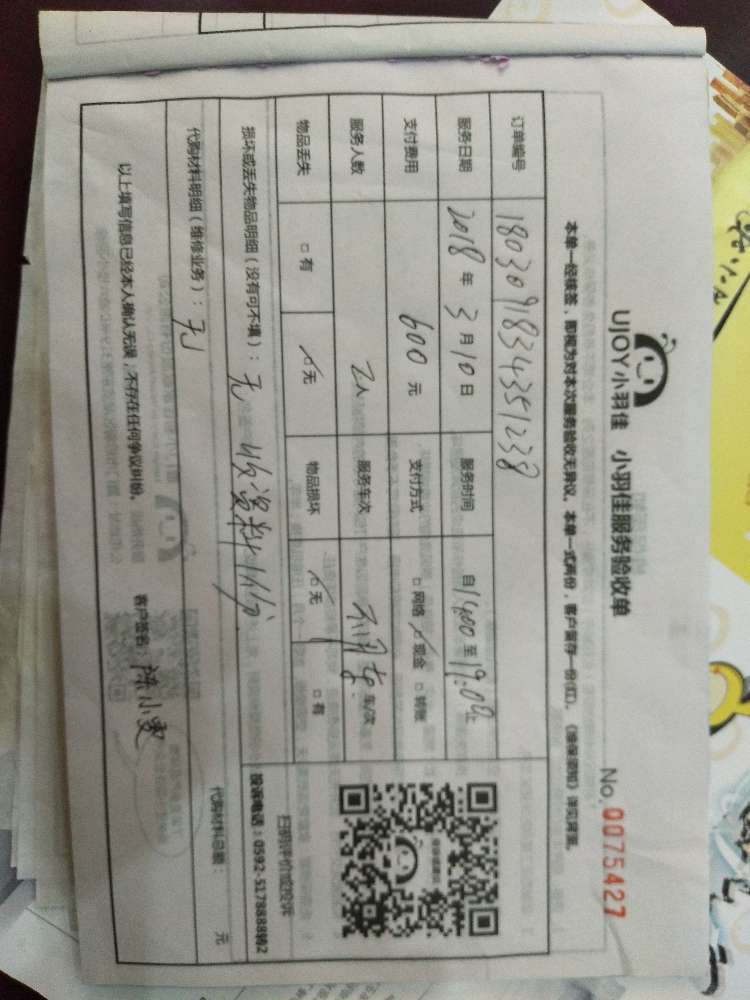 UJOY小羽佳 小羽佳服务验收单
No. 0075427
本单一经接签，即视为对本次服务验收无异议，本单一式两份，客户留存一份(红)。《维保须知》详见背面。
订单编号 180309183435 1238
服务日期 2018年3月10日 服务时间 自1400至19:00止
支付费用 600元 支付方式 □网络 □现金 □转账
服务人数 2人 服务车次 车/次
物品丢失 □有 □无 物品损坏 □无 □有
扫码评价或投诉
投诉电话：0592-5178888转2
损坏或丢失物品明细（没有可不填）：无 收资料
代购材料明细（维修业务）：无
代购材料总额： 元
以上填写信息已经本人确认无误，不存在任何争议纠纷。 客户签名：陈小雯